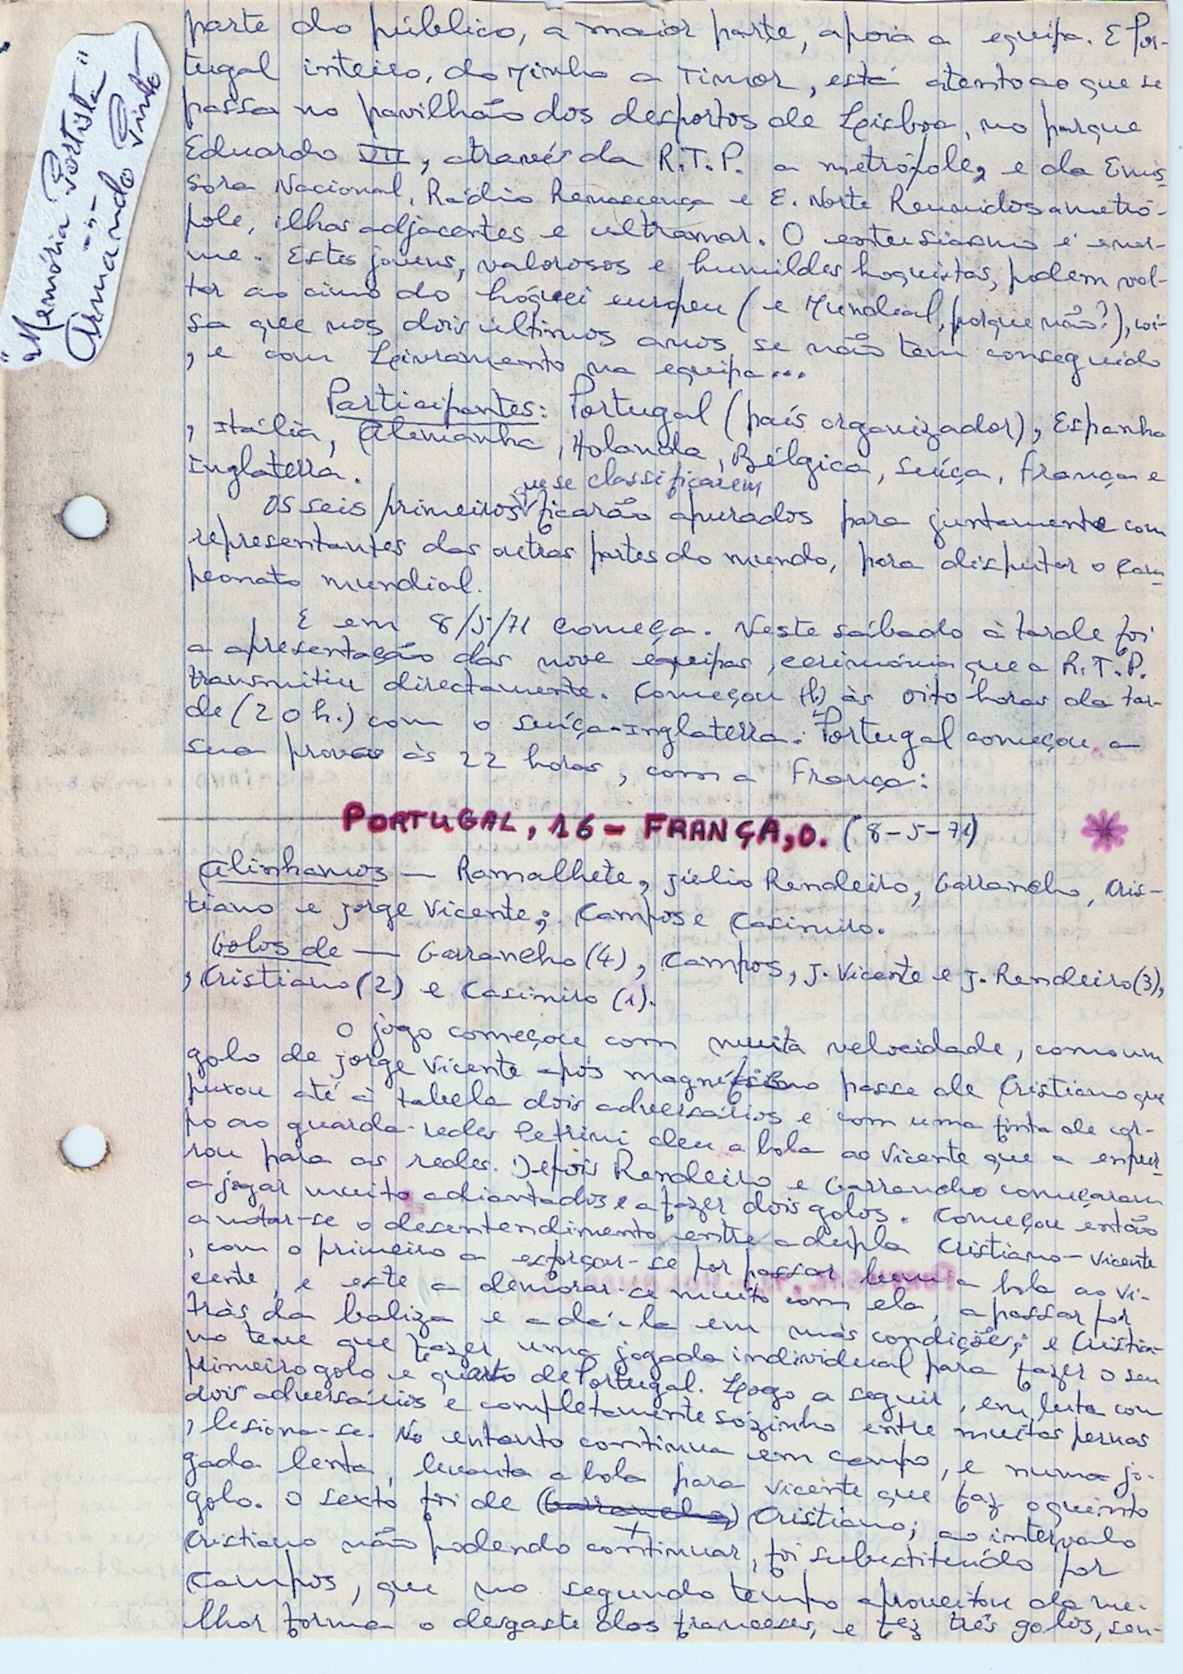 "Memória Portista"
-:-
Armando Pinto
parte do público, a maior parte, apoia a equipa. E Por-
tugal inteiro, do Minho a Timor, está atento ao que se
passa no pavilhão dos desportos de Lisboa, no parque
Eduardo VII, através da R.T.P. a metrópole, e da Emis-
sora Nacional, Rádio Renascença e E. Norte Reunidos a metró-
pole, ilhas adjacentes e ultramar. O entusiasmo é enor-
me. Estes jovens, valorosos e humildes hoquistas, podem vol-
tar ao cimo do hóquei europeu (e Mundial, porque não?), coi-
sa que nos dois últimos anos se não tem conseguido
, e com Livramento na equipa...
Participantes: Portugal (país organizador), Espanha
, Itália, Alemanha, Holanda, Bélgica, Suíça, França e
Inglaterra.
que se classificarem
Os seis primeiros ficarão apurados para juntamente com
representantes das outras partes do mundo, para disputar o cam-
peonato mundial.
E em 8/5/71 começa. Neste sábado à tarde foi
a apresentação das nove equipas, cerimónia que a R.T.P.
transmitiu directamente. Começou (h) às oito horas da tar-
de (20 h.) com o Suíça-Inglaterra. Portugal começou a
sua prova às 22 horas, com a França:
PORTUGAL, 16 - FRANÇA, 0. (8-5-71)
Alinhamos — Ramalhete, Júlio Rendeiro, Garrancho, Cris-
tiano e Jorge Vicente; Campos e Casimiro.
Golos de — Garrancho (4), Campos, J. Vicente e J. Rendeiro (3),
, Cristiano (2) e Casimiro (1).
O jogo começou com muita velocidade, com um
golo de Jorge Vicente após magnífico passe de Cristiano que
puxou até à tabela dois adversários e com uma finta de cor-
po ao guarda-redes Petrini deu a bola ao Vicente que a empur-
rou para as redes. Depois Rendeiro e Garrancho começaram
a jogar muito adiantados e a fazer dois golos. Começou então
a notar-se o desentendimento entre a dupla Cristiano-Vicente
, com o primeiro a esforçar-se por passar bem a bola ao Vi-
cente, e este a demorar-se muito com ela, a passar por
trás da baliza e a dá-la em más condições; e Cristia-
no teve que fazer uma jogada individual para fazer o seu
primeiro golo e quarto de Portugal. Logo a seguir, em luta com
dois adversários e completamente sózinho entre muitas pernas
, lesiona-se. No entanto continua em campo, e numa jo-
gada lenta, levanta a bola para Vicente que faz o quinto
golo. O sexto foi de (Garrancho) Cristiano; ao intervalo
Cristiano não podendo continuar, foi substituído por
Campos, que no segundo tempo aproveitou da me-
lhor forma o desgaste dos franceses, e fez três golos, sen-